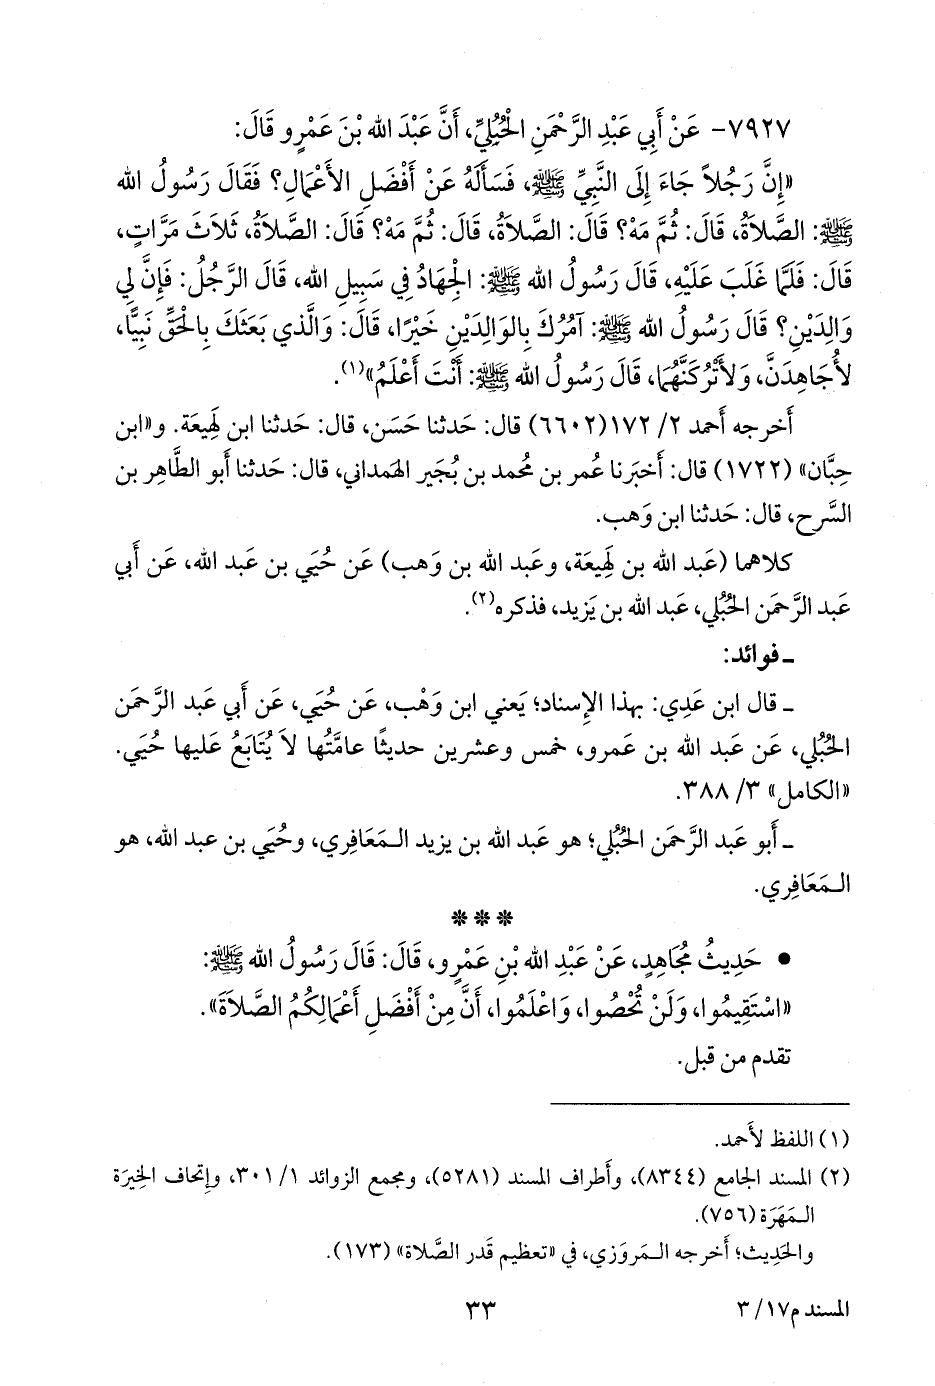 ٧٩٢٧- عَنْ أَبِي عَبْدِ الرَّحْمَنِ الْحُبُلِيِّ، أَنَّ عَبْدَ الله بْنَ عَمْرٍو قَالَ:
«إِنَّ رَجُلاً جَاءَ إِلَى النَّبِيِّ ﷺ، فَسَأَلَهُ عَنْ أَفْضَلِ الأَعْمَالِ؟ فَقَالَ رَسُولُ الله
ﷺ: الصَّلاَةُ، قَالَ: ثُمَّ مَهْ؟ قَالَ: الصَّلاَةُ، قَالَ: ثُمَّ مَهْ؟ قَالَ: الصَّلاَةُ، ثَلاَثَ مَرَّاتٍ،
قَالَ: فَلَمَّا غَلَبَ عَلَيْهِ، قَالَ رَسُولُ الله ﷺ: الْجِهَادُ فِي سَبِيلِ الله، قَالَ الرَّجُلُ: فَإِنَّ لِي
وَالِدَيْنِ؟ قَالَ رَسُولُ الله ﷺ: آمُرُكَ بِالوَالِدَيْنِ خَيْرًا، قَالَ: وَالَّذِي بَعَثَكَ بِالْحَقِّ نَبِيًّا،
لأُجَاهِدَنَّ، وَلأَتْرُكَنَّهُمَا، قَالَ رَسُولُ الله ﷺ: أَنْتَ أَعْلَمُ»(١).
أَخرجه أَحمد ٢/ ١٧٢ (٦٦٠٢) قال: حَدثنا حَسَن، قال: حَدثنا ابن لَهِيعَة. و«ابن
حِبَّان» (١٧٢٢) قال: أَخبَرنا عُمر بن مُحمد بن بُجَير الهَمداني، قال: حَدثنا أَبو الطَّاهِر بن
السَّرح، قال: حَدثنا ابن وَهب.
كلاهما (عَبد الله بن لَهِيعَة، وعَبد الله بن وَهب) عَن حُيَي بن عَبد الله، عَن أَبي
عَبد الرَّحمَن الحُبُلي، عَبد الله بن يَزيد، فذكره(٢).
ـ فوائد:
ـ قال ابن عَدِي: بهذا الإِسناد؛ يَعني ابن وَهْب، عَن حُيَي، عَن أَبي عَبد الرَّحمَن
الحُبُلي، عَن عَبد الله بن عَمرو، خمس وعشرين حديثًا عامَّتُها لاَ يُتَابَعُ عَليها حُيَي.
«الكامل» ٣/ ٣٨٨.
ـ أَبو عَبد الرَّحمَن الحُبُلي؛ هو عَبد الله بن يزيد الـمَعَافِري، وحُيَي بن عبد الله، هو
الـمَعَافِري.
***
• حَدِيثُ مُجَاهِدٍ، عَنْ عَبْدِ الله بْنِ عَمْرٍو، قَالَ: قَالَ رَسُولُ الله ﷺ:
«اسْتَقِيمُوا، وَلَنْ تُحْصُوا، وَاعْلَمُوا، أَنَّ مِنْ أَفْضَلِ أَعْمَالِكُمُ الصَّلاَةَ».
تقدم من قبل.
(١) اللفظ لأَحمد.
(٢) المسند الجامع (٨٣٤٤)، وأَطراف المسند (٥٢٨١)، ومجمع الزوائد ١/ ٣٠١، وإِتحاف الخِيرَة
الـمَهَرَة (٧٥٦).
والحَدِيث؛ أَخرجه الـمَروَزي، في «تعظيم قَدر الصَّلاة» (١٧٣).
المسند م١٧/ ٣
٣٣